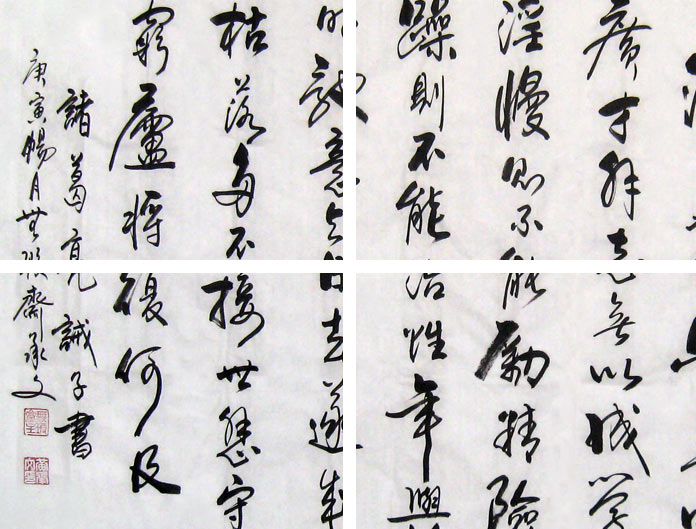 廣才非志無以成學
淫慢則不能勵精險
躁則不能治性年與
時馳意與日去遂成
枯落多不接世悲守
窮廬將復何及
諸葛亮誡子書
庚寅暢月無齋承文